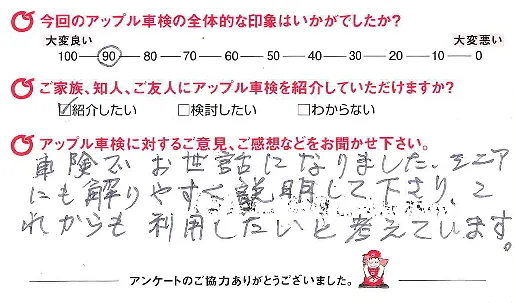 今回のアップル車検の全体的な印象はいかがでしたか?
大変良い 大変悪い
100 90 80 70 60 50 40 30 20 10 0
ご家族、知人、ご友人にアップル車検を紹介していただけますか?
☑紹介したい □検討したい □わからない
アップル車検に対するご意見、ご感想などをお聞かせ下さい。
車険でお世話になりました。シニア
にも解りやすく説明して下さり、こ
れからも利用したいと考えています。
アンケートのご協力ありがとうございました。